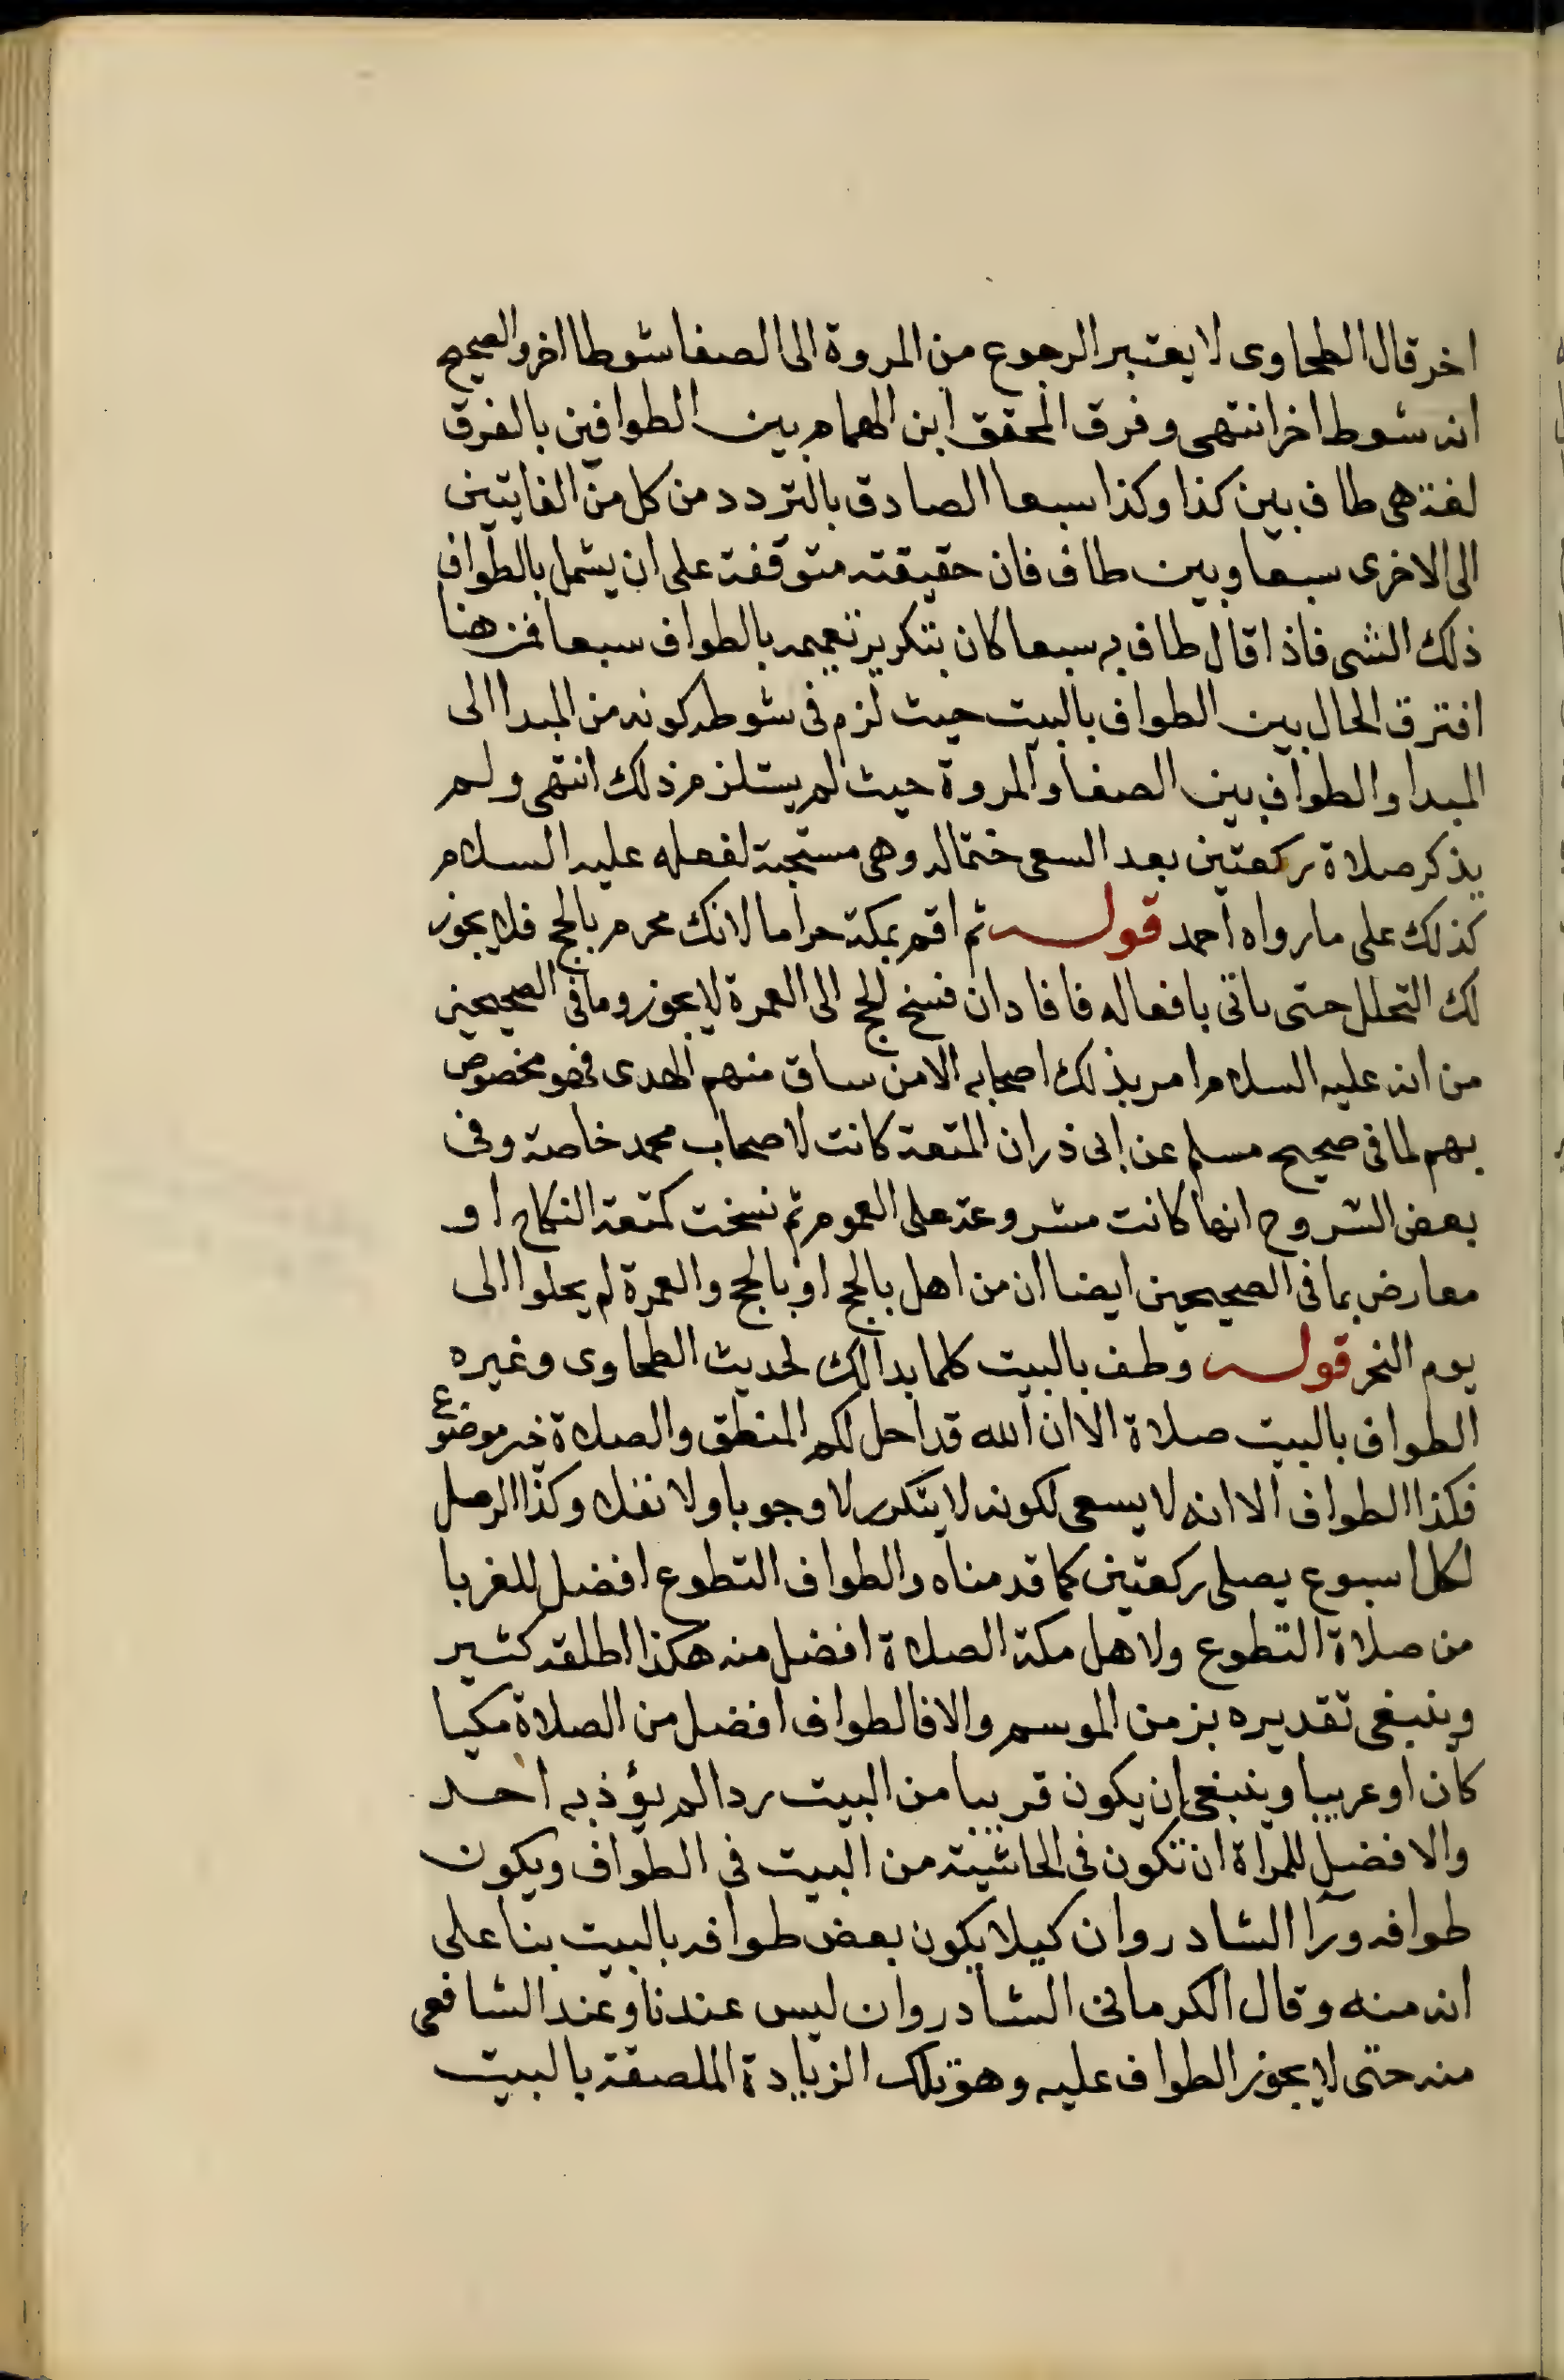 اخر قال الطحاوى لا يعتبر الرجوع من المروة الى الصفا شوطا اخر والصحيح
انه شوط اخر انتهى وفرق المحقق ابن الهمام بين الطوافين بالفرق
لغة هى طاف بين كذا وكذا سبعا الصادق بالتردد من كل من الغايتين
الى الاخرى سبعا وبين طاف فان حقيقته متوقفة على ان يشمل بالطواف
ذلك الشى فاذا قال طاف به سبعا كان بتكرير تعميمه بالطواف سبعا فمن هنا
افترق الحال بين الطواف بالبيت حيث لزم فى شوطه كونه من المبدا الى
المبدا والطواف بين الصفا والمروة حيث لم يستلزم ذلك انتهى ولم
يذكر صلاة ركعتين بعد السعى ختما له وهى مستحبة لفعله عليه السلام
كذلك على ما رواه احمد قوله ثم اقم بمكة حراما لانك محرم بالحج فلا يجوز
لك التحلل حتى ياتى بافعاله فافاد ان فسخ الحج الى العمرة لا يجوز وما فى الصحيحين
من انه عليه السلام امر بذلك اصحابه الا من ساق منهم الهدى فهو مخصوص
بهم لما فى صحيح مسلم عن ابى ذر ان المتعة كانت لاصحاب محمد خاصة وفى
بعض الشروح انها كانت مشروعة على العموم ثم نسخت كمتعة النكاح او
معارض بما فى الصحيحين ايضا ان من اهل بالحج او بالحج والعمرة لم يحلوا الى
يوم النحر قوله وطف بالبيت كلما بدا لك لحديث الطحاوى وغيره
الطواف بالبيت صلاة الا ان الله قد احل لكم المنطق والصلاة خير موضوع
فكذا الطواف الا انه لا يسعى لكونه لا يتكرر لا وجوبا ولا نفلا وكذا الرمل
لكل اسبوع يصلى ركعتين كما قدمناه والطواف التطوع افضل للغربا
من صلاة التطوع ولاهل مكة الصلاة افضل منه هكذا اطلقه كثير
وينبغى تقديره بزمن الموسم والا فالطواف افضل من الصلاة مكيا
كان او عريبا وينبغى ان يكون قريبا من البيت ردا لم يؤذ به احد
والافضل للمراة ان تكون فى الحاشية من البيت فى الطواف ويكون
طوافه ورآ الشادروان كيلا يكون بعض طوافه بالبيت بنا على
انه منه وقال الكرمانى الشادروان ليس عندنا وعند الشافعى
منه حتى لا يجوز الطواف عليه وهو تلك الزيادة الملصقة بالبيت